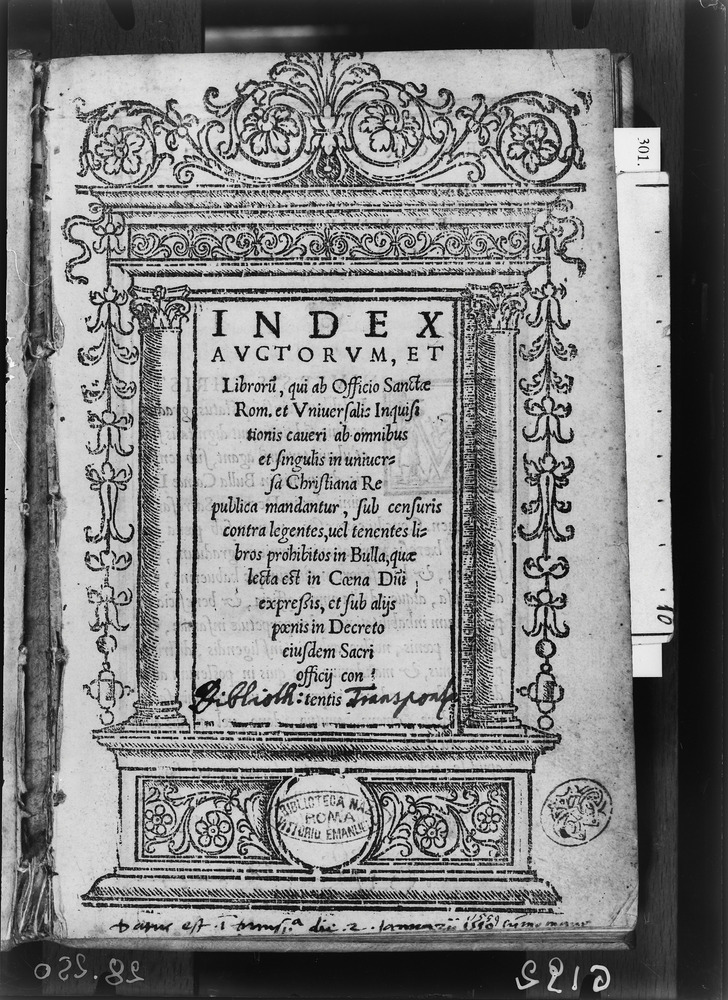 301.
INDEX
AVCTORVM, ET
Librorū, qui ab Officio Sanctæ
Rom. et Vniuersalis Inquisi
tionis caueri ab omnibus
et singulis in uniuer=
sa Christiana Re
publica mandantur, sub censuris
contra legentes, uel tenentes li=
bros prohibitos in Bulla, quæ
lecta est in Cœna Dñi
expressis, et sub alijs
pœnis in Decreto
eiusdem Sacri
officij con
Biblioth: tentis
10
BIBLIOTECA NAZ
ROMA
VITTORIO EMANUELE
est
die 2
28.250
G192